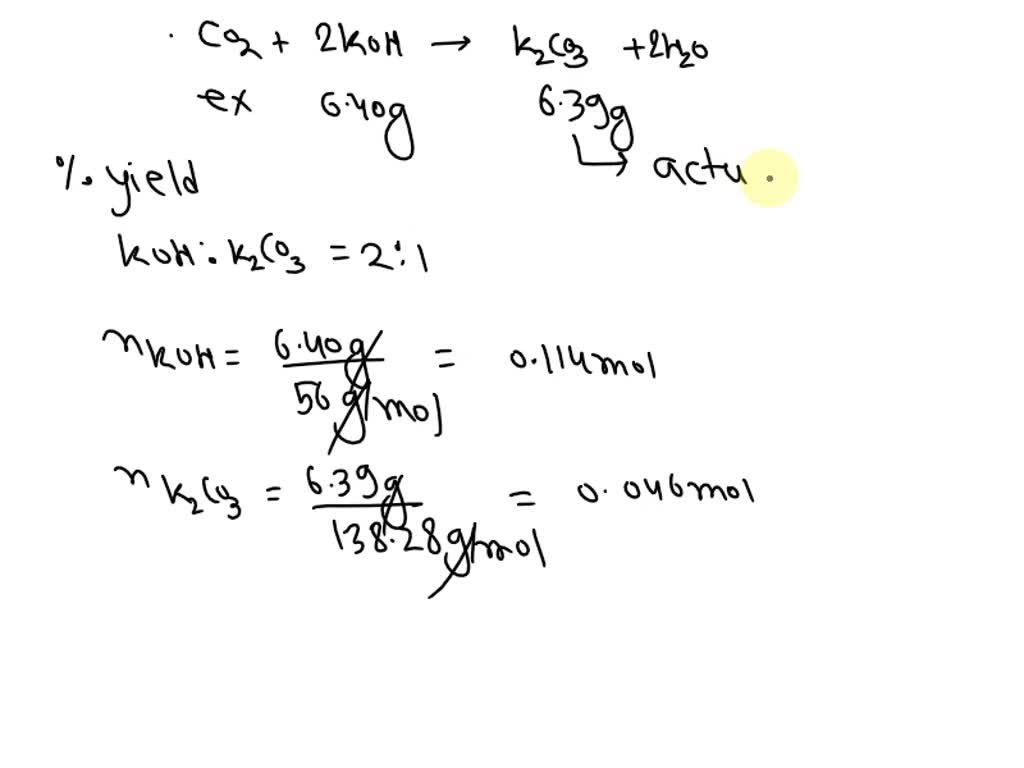 . CO2 + 2KOH → K2CO3 +2H2O
ex 6.40g 6.39g
% yield
actu
KOH : K2CO3 = 2:1
nKOH = 6.40g / 56 g/mol = 0.114mol
nK2CO3 = 6.39g / 138.28g/mol = 0.046mol